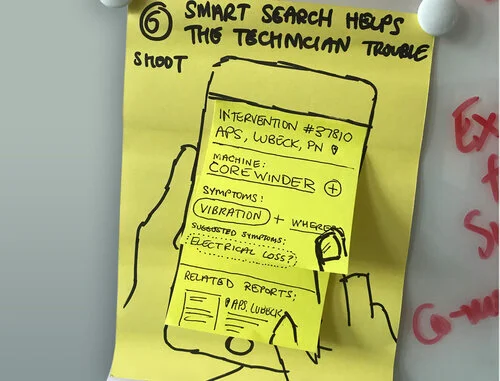 6 SMART SEARCH HELPS
THE TECHNICIAN TROUBLE
SHOOT
INTERVENTION #37810
APS, LUBECK, PN
MACHINE:
CORE WINDER +
SYMPTOMS:
VIBRATION + WHERE
SUGGESTED SYMPTOMS:
ELECTRICAL LOSS?
RELATED REPORTS:
APS, LUBECK